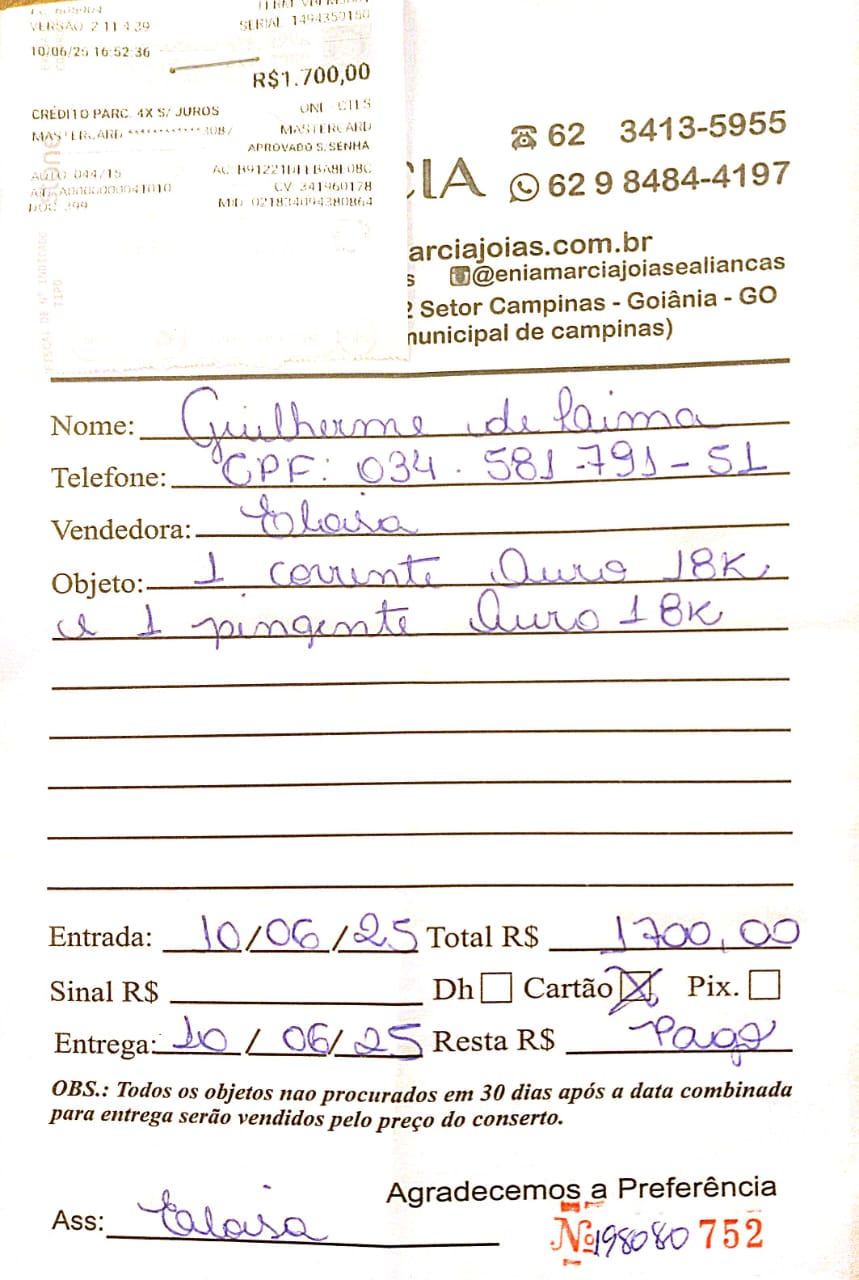 VERSÃO 2 11 4 29
SERIAL 1494350160
10/06/25 16:52:36
R$1.700,00
CRÉDITO PARC. 4X S/ JUROS
MASTERCARD ************3087
MASTERCARD
APROVADO S. SENHA
CV 341960178
CIA
62 3413-5955
62 9 8484-4197
arciajoias.com.br
s @eniamarciajoiasealiancas
2 Setor Campinas - Goiânia - GO
municipal de campinas)
Nome: Guilherme de Laima
Telefone: CPF: 034.581.791-51
Vendedora: Eloisa
Objeto: 1 corrente Ouro 18K
e 1 pingente Ouro 18K
Entrada: 10/06/25 Total R$ 1700,00
Sinal R$ Dh Cartão X Pix.
Entrega: 10/06/25 Resta R$ Pago
OBS.: Todos os objetos nao procurados em 30 dias após a data combinada
para entrega serão vendidos pelo preço do conserto.
Agradecemos a Preferência
Ass: Eloisa
Nº 198080 752